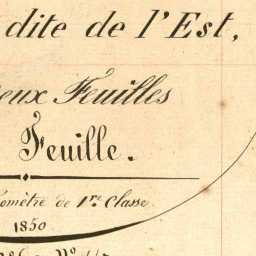 dite de l'Est,
Feuilles
Feuille.
de 1re Classe
1850